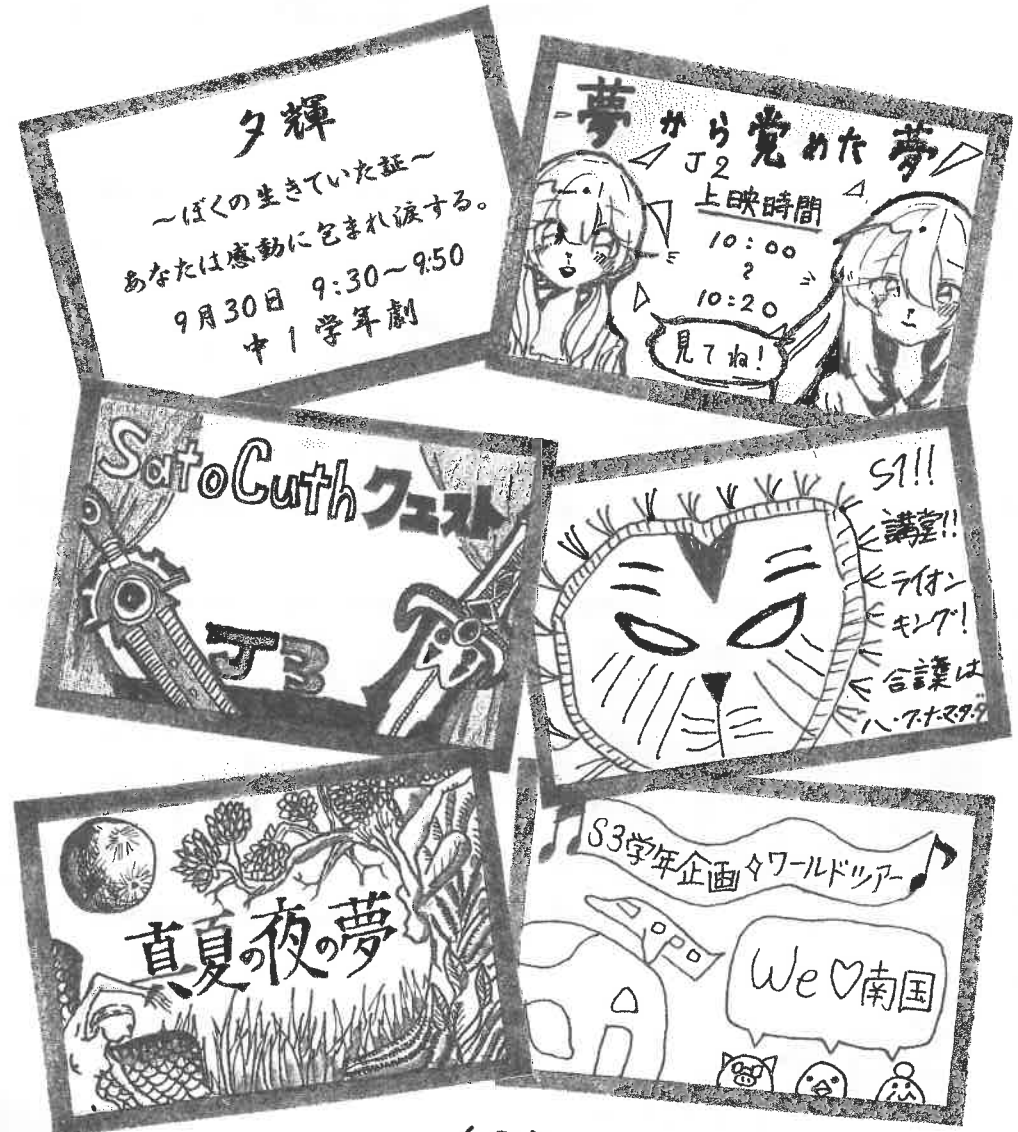 夕輝
~ぼくの生きていた証~
あなたは感動に包まれ涙する。
9月30日 9:30~9:50
中1学年劇
夢から覚めた夢
J2
上映時間
10:00
~
10:20
見てね!
SatoCuthクエスト
J3
S1!!
講堂!!
ライオン
キング!
合言葉は
ハ・ク・ナ・マ・タ・タ
真夏の夜の夢
S3学年企画◇ワールドツアー
We♡南国